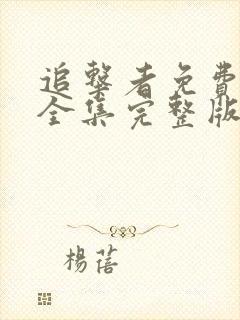 追擊者免費
全集完整版
楊蓓